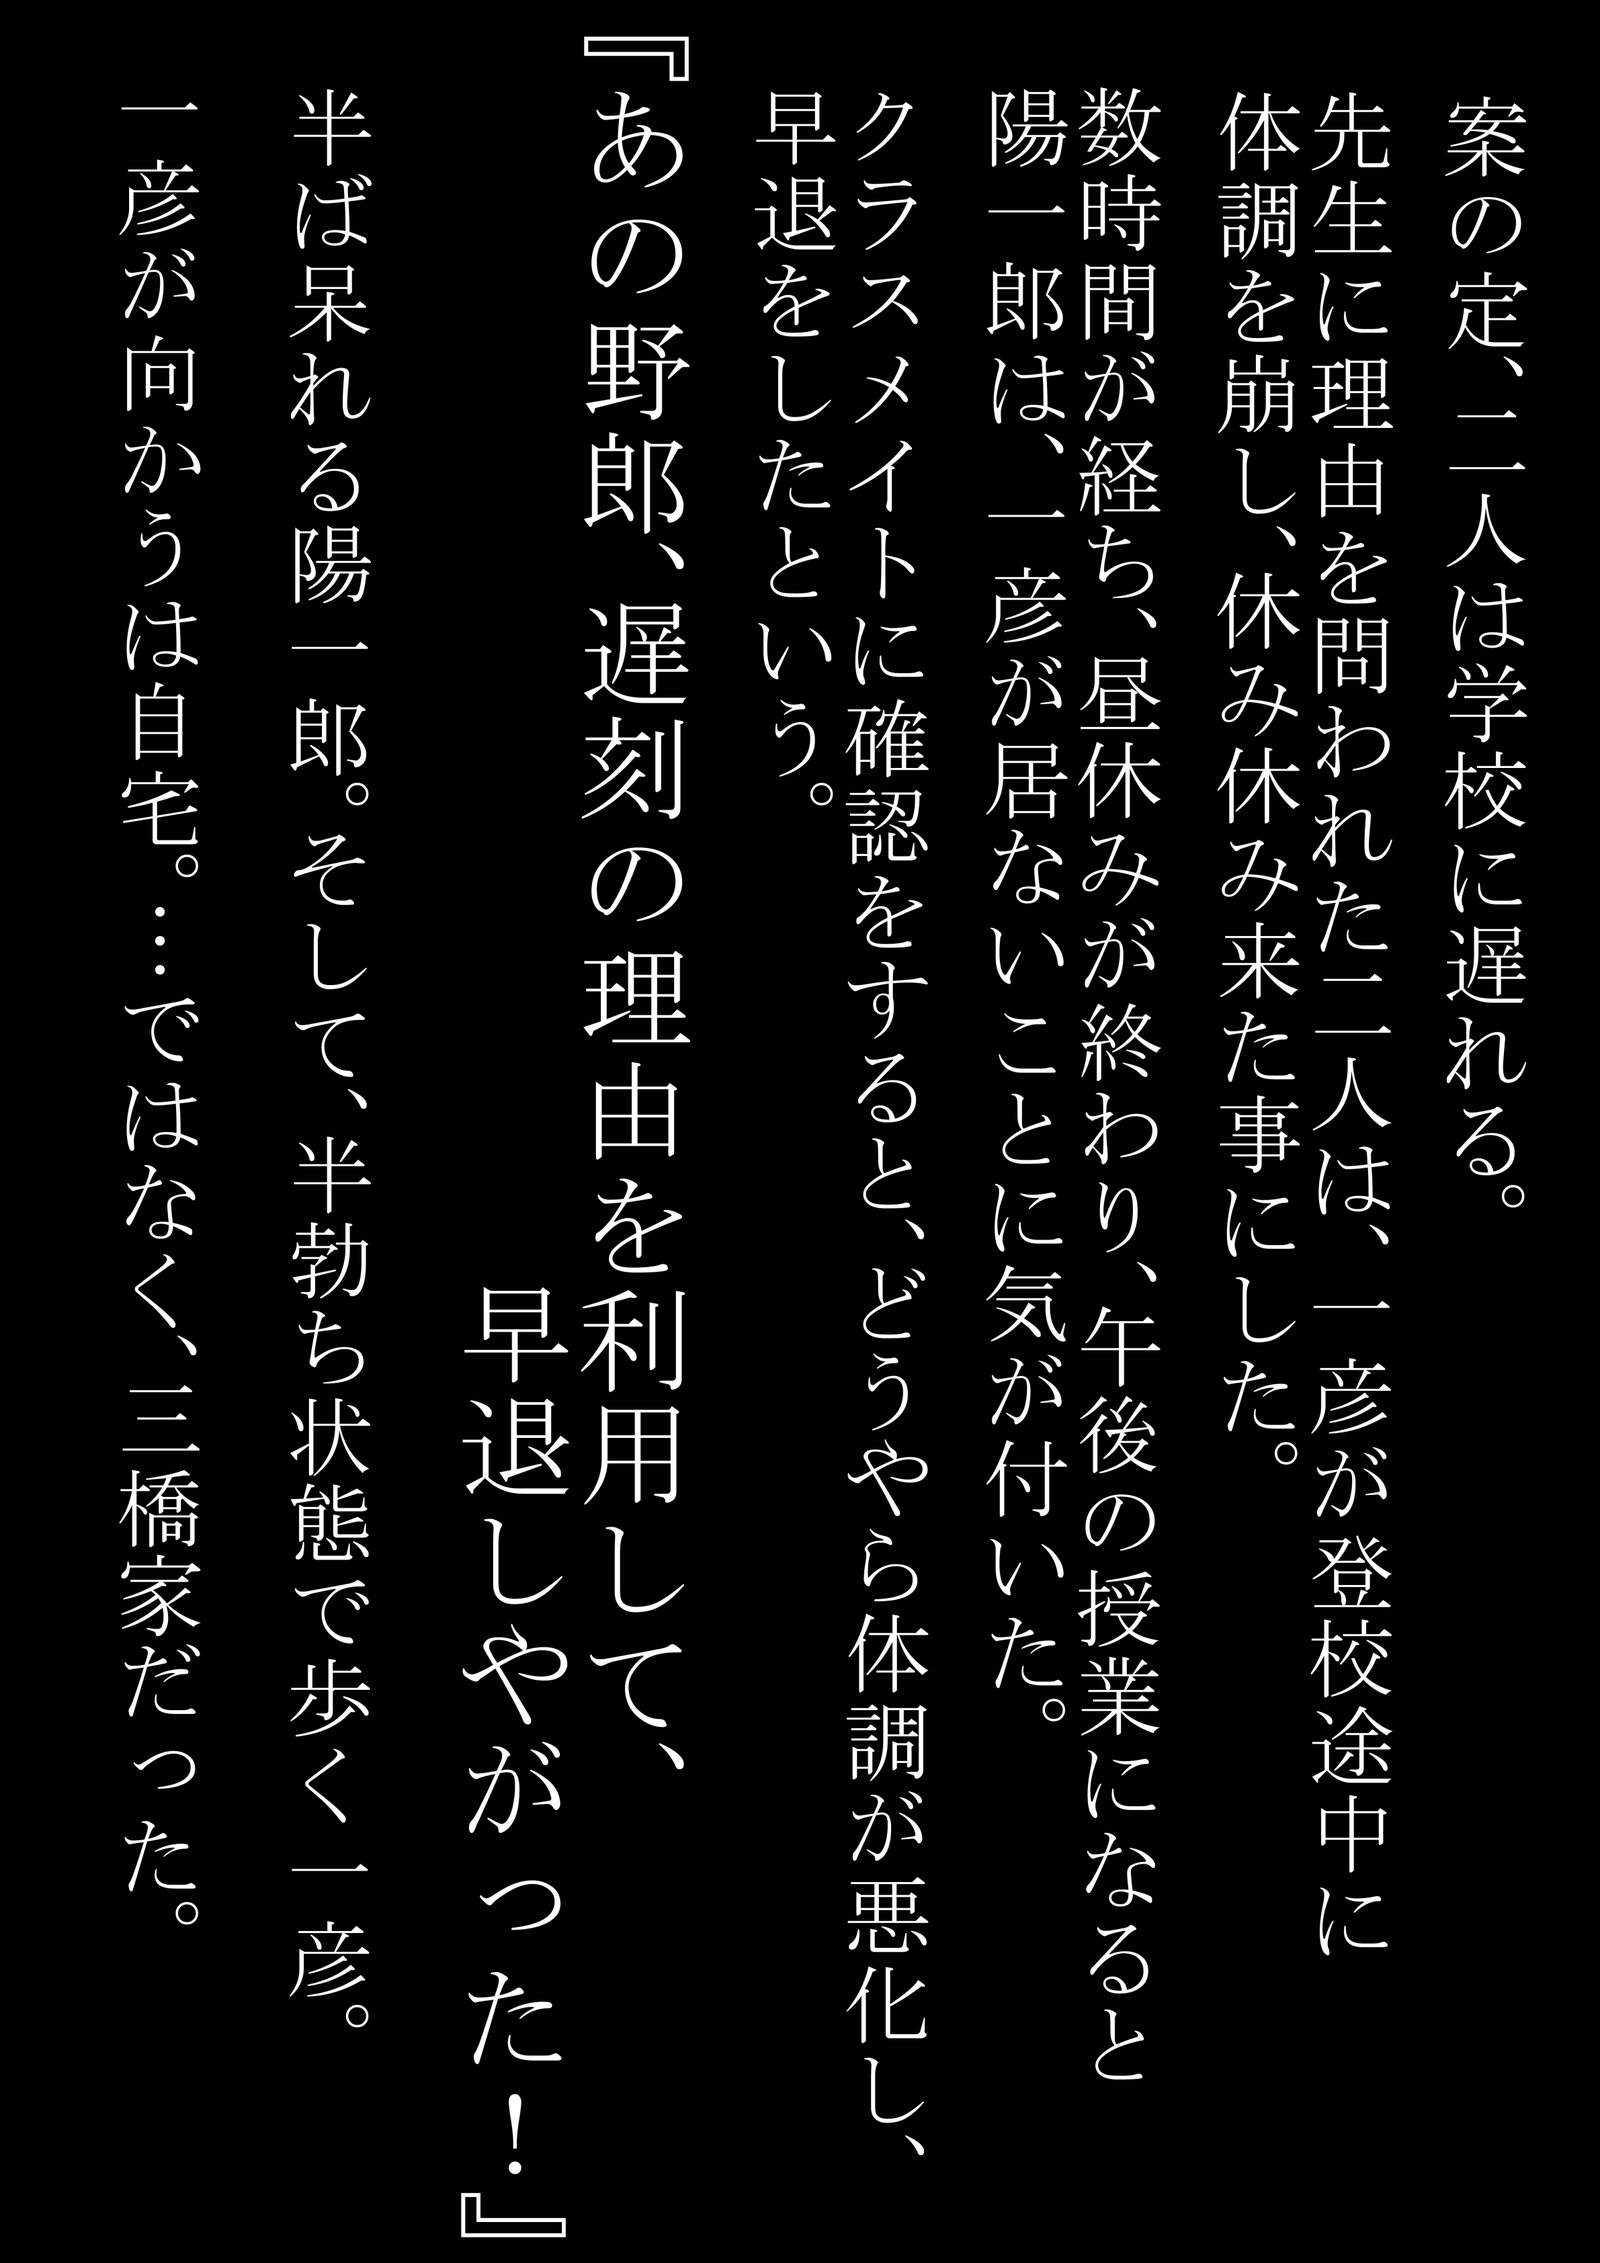 案の定、二人は学校に遅れる。
先生に理由を問われた二人は、一彦が登校途中に
体調を崩し、休み休み来た事にした。
数時間が経ち、昼休みが終わり、午後の授業になると
陽一郎は、一彦が居ないことに気が付いた。
クラスメイトに確認をすると、どうやら体調が悪化し、
早退をしたという。
『あの野郎、遅刻の理由を利用して、
早退しやがった！』
半ば呆れる陽一郎。そして、半勃ち状態で歩く一彦。
一彦が向かうは自宅。…ではなく、三橋家だった。